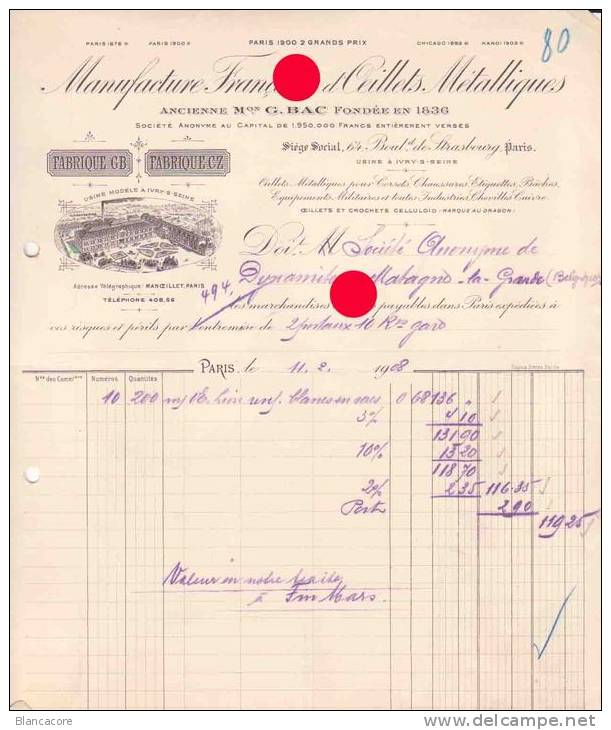 80
PARIS 1878 PARIS 1900 PARIS 1900 2 GRANDS PRIX CHICAGO 1893 HANOI 1903
Manufacture Franç d'Œillets Métalliques
ANCIENNE MON G. BAC FONDÉE EN 1836
SOCIÉTÉ ANONYME AU CAPITAL DE 1.950.000 FRANCS ENTIÈREMENT VERSÉS
Siège Social, 64 Boul.d de Strasbourg, Paris.
USINE A IVRY-S-SEINE
FABRIQUE GB FABRIQUE CZ
USINE MODÈLE A IVRY-S-SEINE
Œillets Métalliques pour Corsets, Chaussures, Etiquettes, Bâches,
Equipements Militaires et toutes Industries, Chevilles Cuivre.
ŒILLETS ET CROCHETS CELLULOID (MARQUE AU DRAGON)
Doit M Société Anonyme de
Dynamite Matagne-la-Grande (Belgique)
Adresse Télégraphique: MANŒILLET, PARIS
TÉLÉPHONE 408,56
494
les marchandises payables dans Paris expédiées à
vos risques et périls par l'entremise de 2 postaux 10 Kos gare
PARIS, le 11. 2. 1908
Nos des Commdes Numéros Quantités
10 200 blancs en sacs 0 68 136 "
3% 4 10
131 90
10% 13 20
118 70
2% 2 35 116.35
Port 2 90
119 25
Valeur en notre traite
à Fin Mars.
Blancacore
delcampe.net